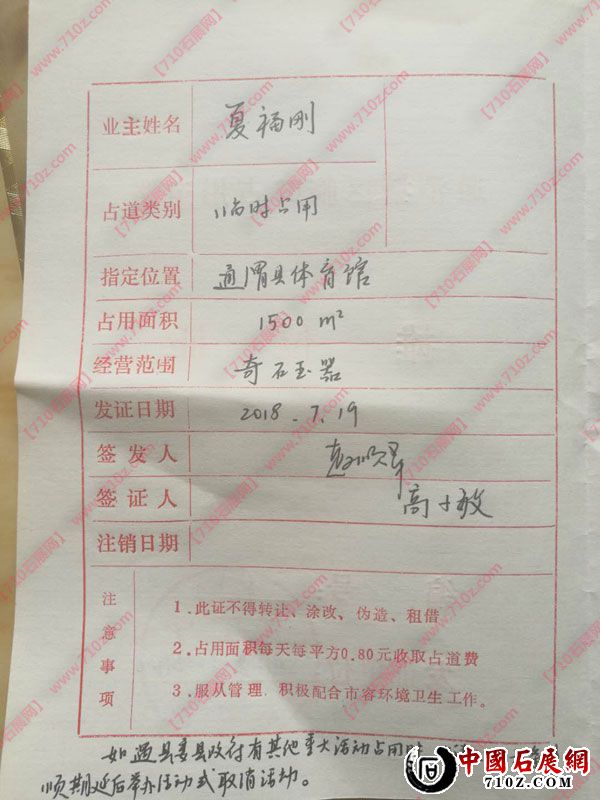 业主姓名 夏福刚
占道类别 临时占用
指定位置 通渭县体育馆
占用面积 1500 m²
经营范围 奇石玉器
发证日期 2018.7.19
签发人
签证人 高小敏
注销日期
注意事项
1.此证不得转让、涂改、伪造、租借
2.占用面积每天每平方0.80元收取占道费
3.服从管理,积极配合市容环境卫生工作。
如遇县委县政府有其他重大活动占用
顺期延后举办活动或取消活动。
中國石展网
710Z.COM
【710石展网】www.710z.com